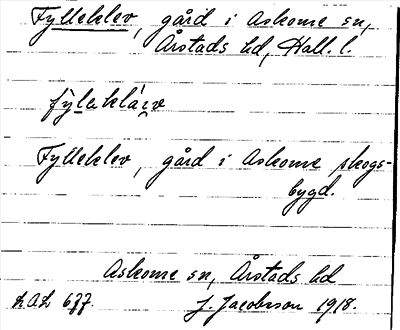 Fylleklev, gård i Askome sn,
Årstads hd, Hall. l.
Fylleklev, gård i Askome skogs-
bygd.
Askome sn, Årstads hd
LAL 677. J. Jacobsson 1918.